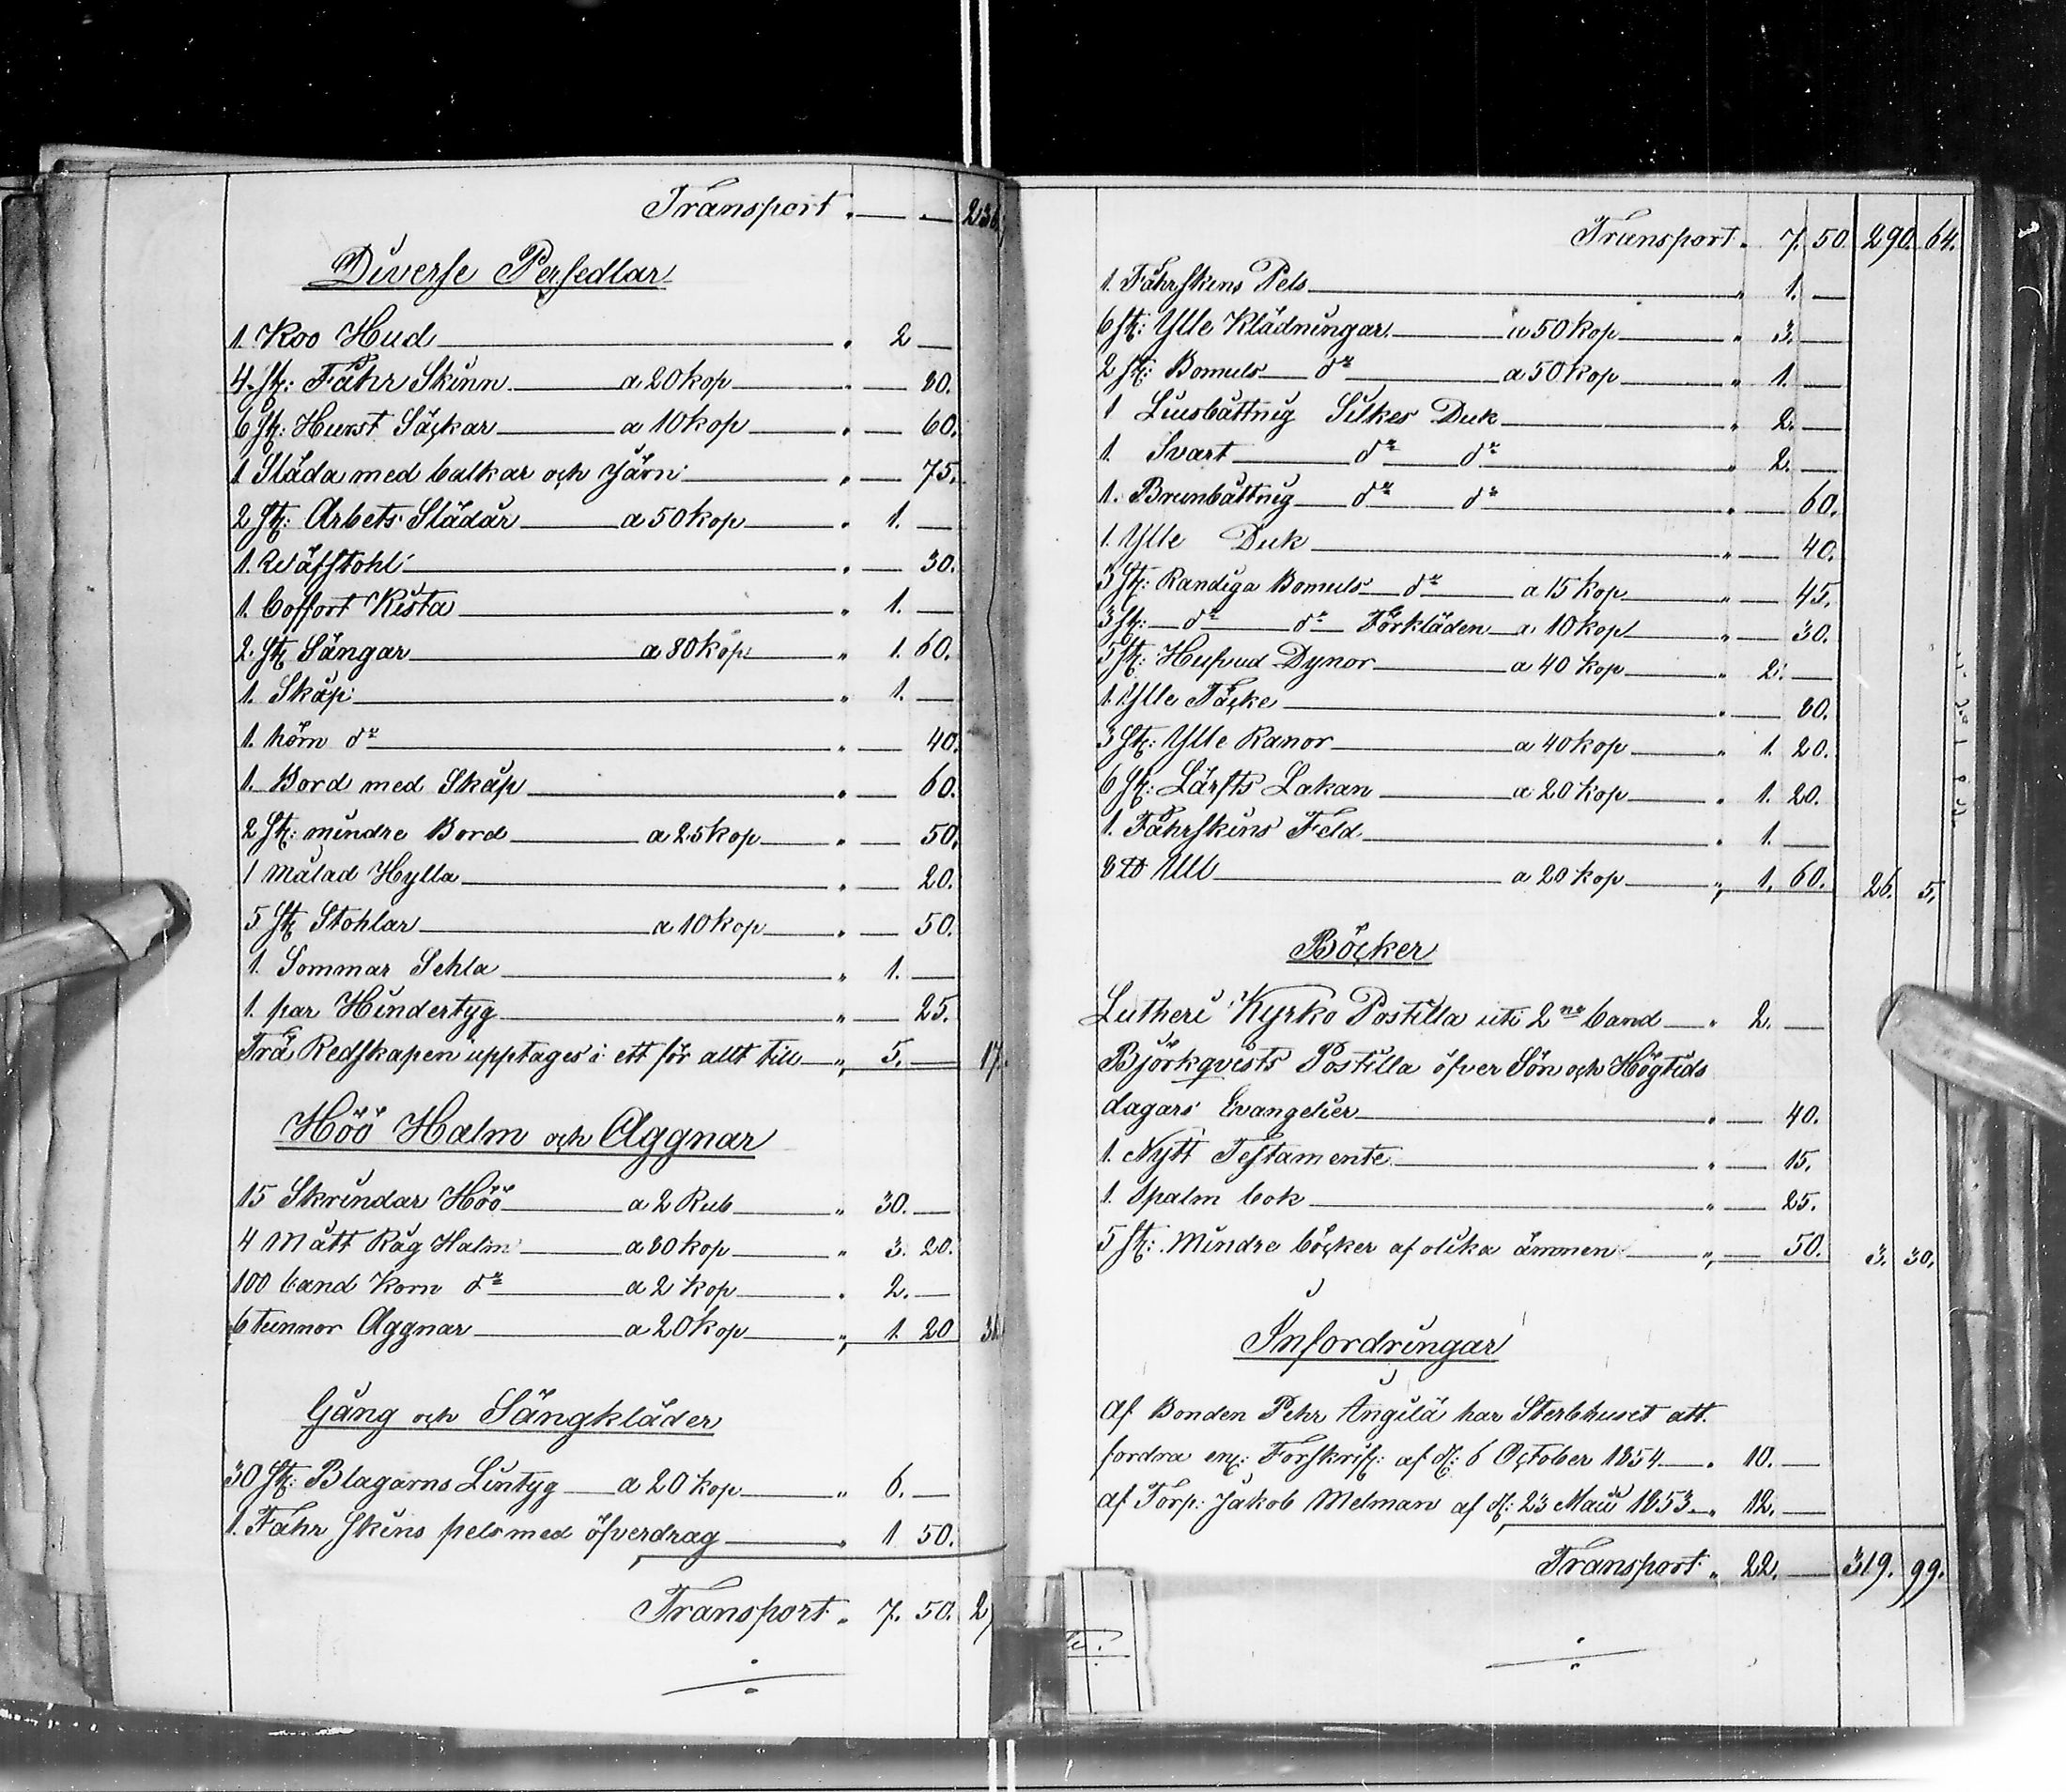 Transport. — — 236.
Diverse Persedlar
1. Koo Hud " 2 —
4. st: Fåhr Skinn a 20 kop " — 80.
6 st: Hurst Säckar a 10 kop " — 60.
1 Släda med balkar och Järn " — 75.
2 st: Arbets Slädar a 50 kop " 1. —
1. Wäfstohl " — 30.
1. Coffort Kista " 1. —
2. st Sängar a 80 kop " 1. 60.
1. Skåp " 1. —
1. hörn do " — 40.
1. Bord med Skåp " — 60.
2 st: mindre Bord a 25 kop " — 50.
1 målad Hylla " — 20.
5 st Stohlar a 10 kop " — 50.
1. Sommar Sehla " 1. —
1. par Hindertyg " — 25.
Trä Redskapen upptages i ett för allt till " 5. — 17.
Höö Halm och Aggnar
15 Skrindar Höö a 2 Rub " 30. —
4 Mått Råg Halm a 80 kop " 3. 20.
100 band Korn do a 2 kop " 2. —
6 tunnor Aggnar a 20 kop " 1. 20 36
Gång och Sängkläder
30 st: Blagarns Lintyg a 20 kop " 6. —
1. Fåhr Skins pels med öfverdrag " 1 50.
Transport. " 7. 50. 2
Transport. 7. 50. 290. 64.
1. Fåhrskins Pels " 1. —
6 st: Ylle Klädningar a 50 kop " 3. —
2 st: Bomuls do a 50 kop " 1. —
1 Liusbåttnig Silkes Duk " 2. —
1. Svart do do " 2. —
1. Brunbåttnig do do " — 60.
1. Ylle Duk " — 40.
3 st: Randiga Bomuls do a 15 kop " — 45.
3 st: do do Förkläden a 10 kop " — 30.
5 st: Hufvud Dynor a 40 kop " 2. —
1. Ylle Täcke " — 80.
3 st: Ylle Ranor a 40 kop " 1. 20.
6 st: Lärfts Lakan a 20 kop " 1. 20.
1. Fåhrskins Feld " 1. —
8 ℔ Ull a 20 kop " 1. 60. 26. 5.
Böcker
Lutheri Kyrko Postilla uti 2ne band " 2. —
Björkqvists Postilla öfver Sön och Högtids
dagars Evangelier " — 40.
1. Nytt Testamente " — 15.
1. Spalm bok " — 25.
5 st: Mindre böcker af olika ämnen " — 50. 3. 30.
Infordringar
af Bonden Pehr Angilä har Sterbhuset att
fordra enl: Förskrif: af d: 6 October 1854 " 10. —
af Torp: Jakob Melman af d: 23 Maii 1853 " 12. —
Transport " 22. — 319. 99.